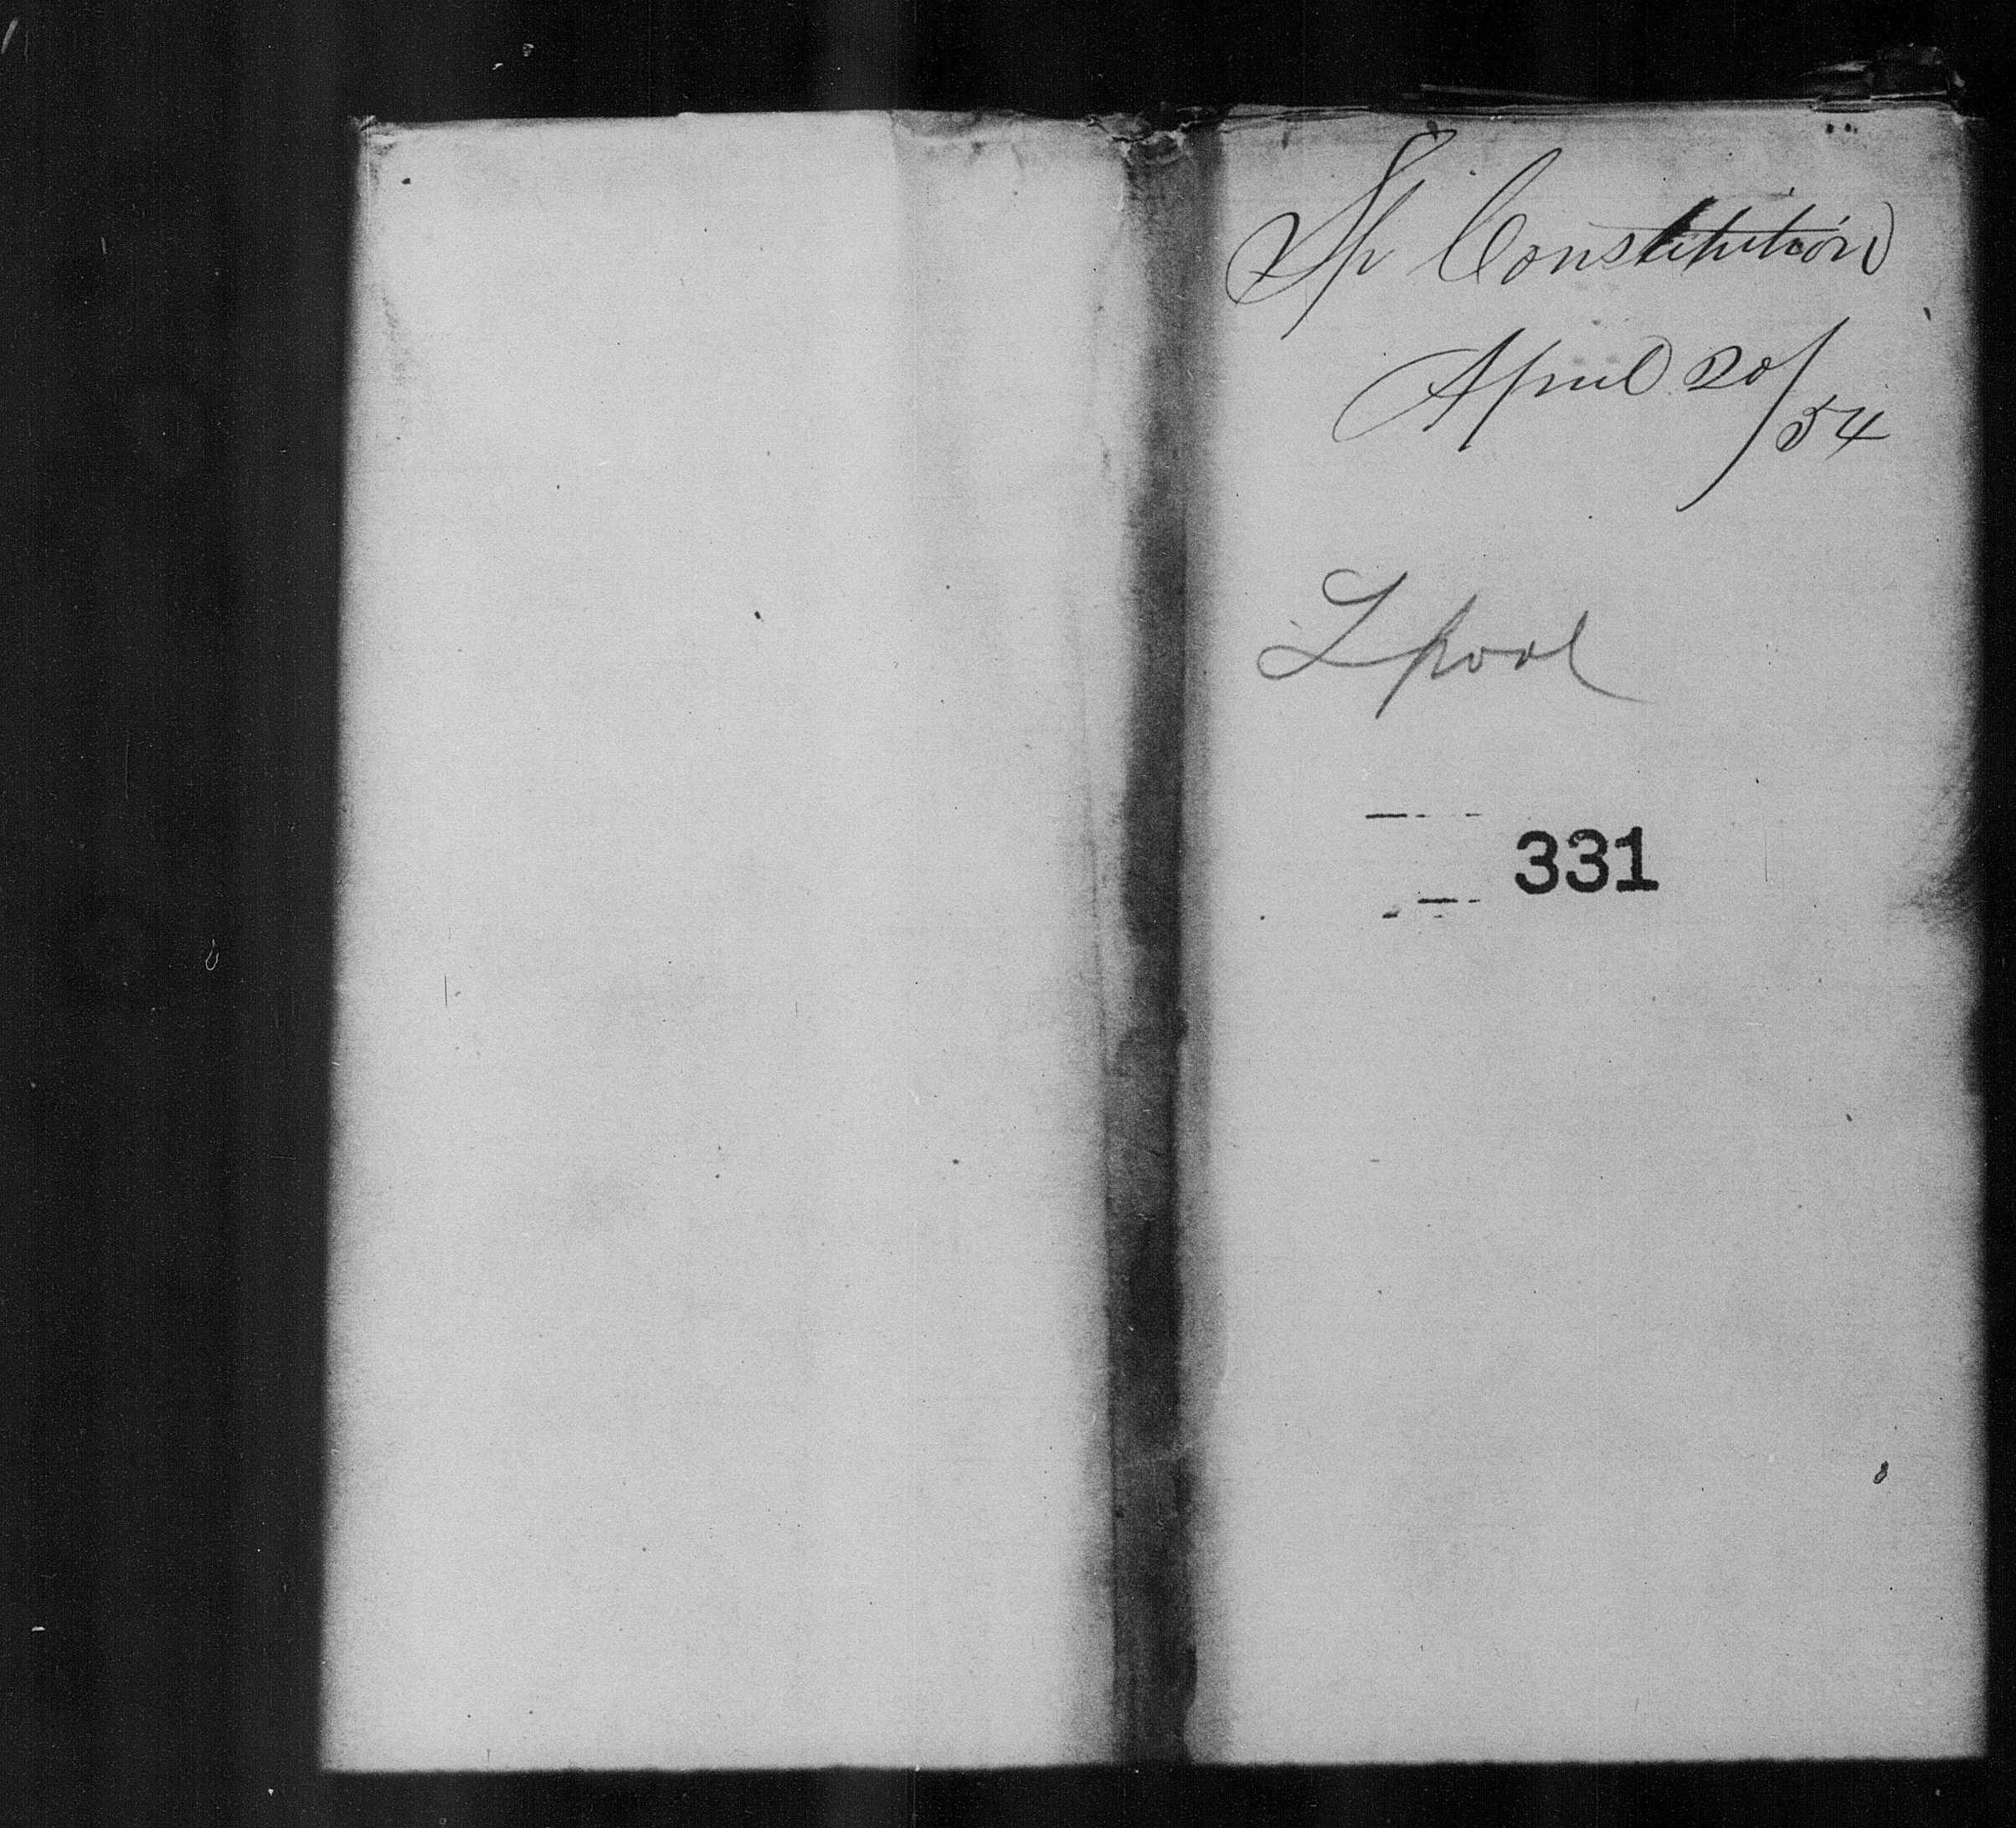 Sh Constitution
April 20/54
Lpool
331